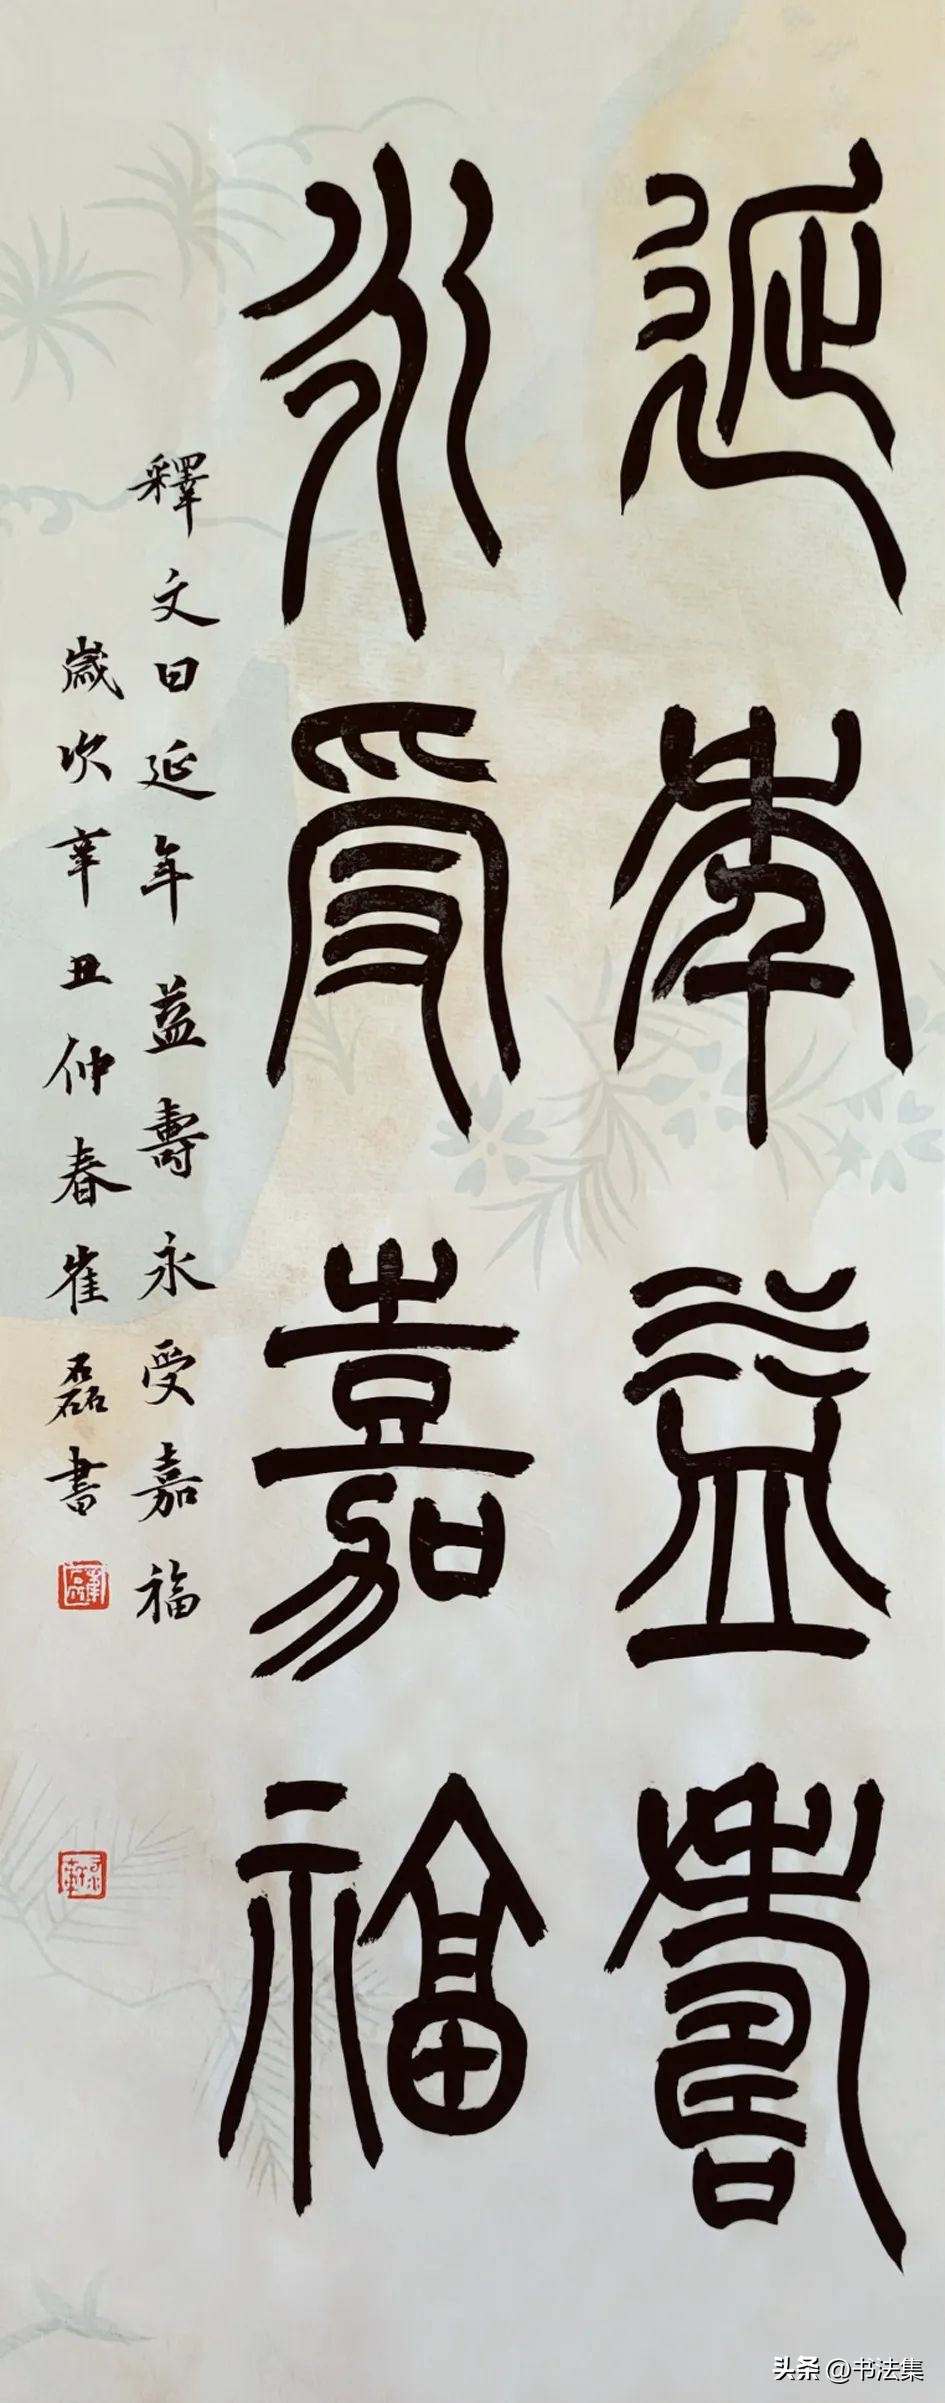 延年益壽
永受嘉福
釋文曰延年益壽永受嘉福
歲次辛丑仲春崔磊書
头条 @书法集